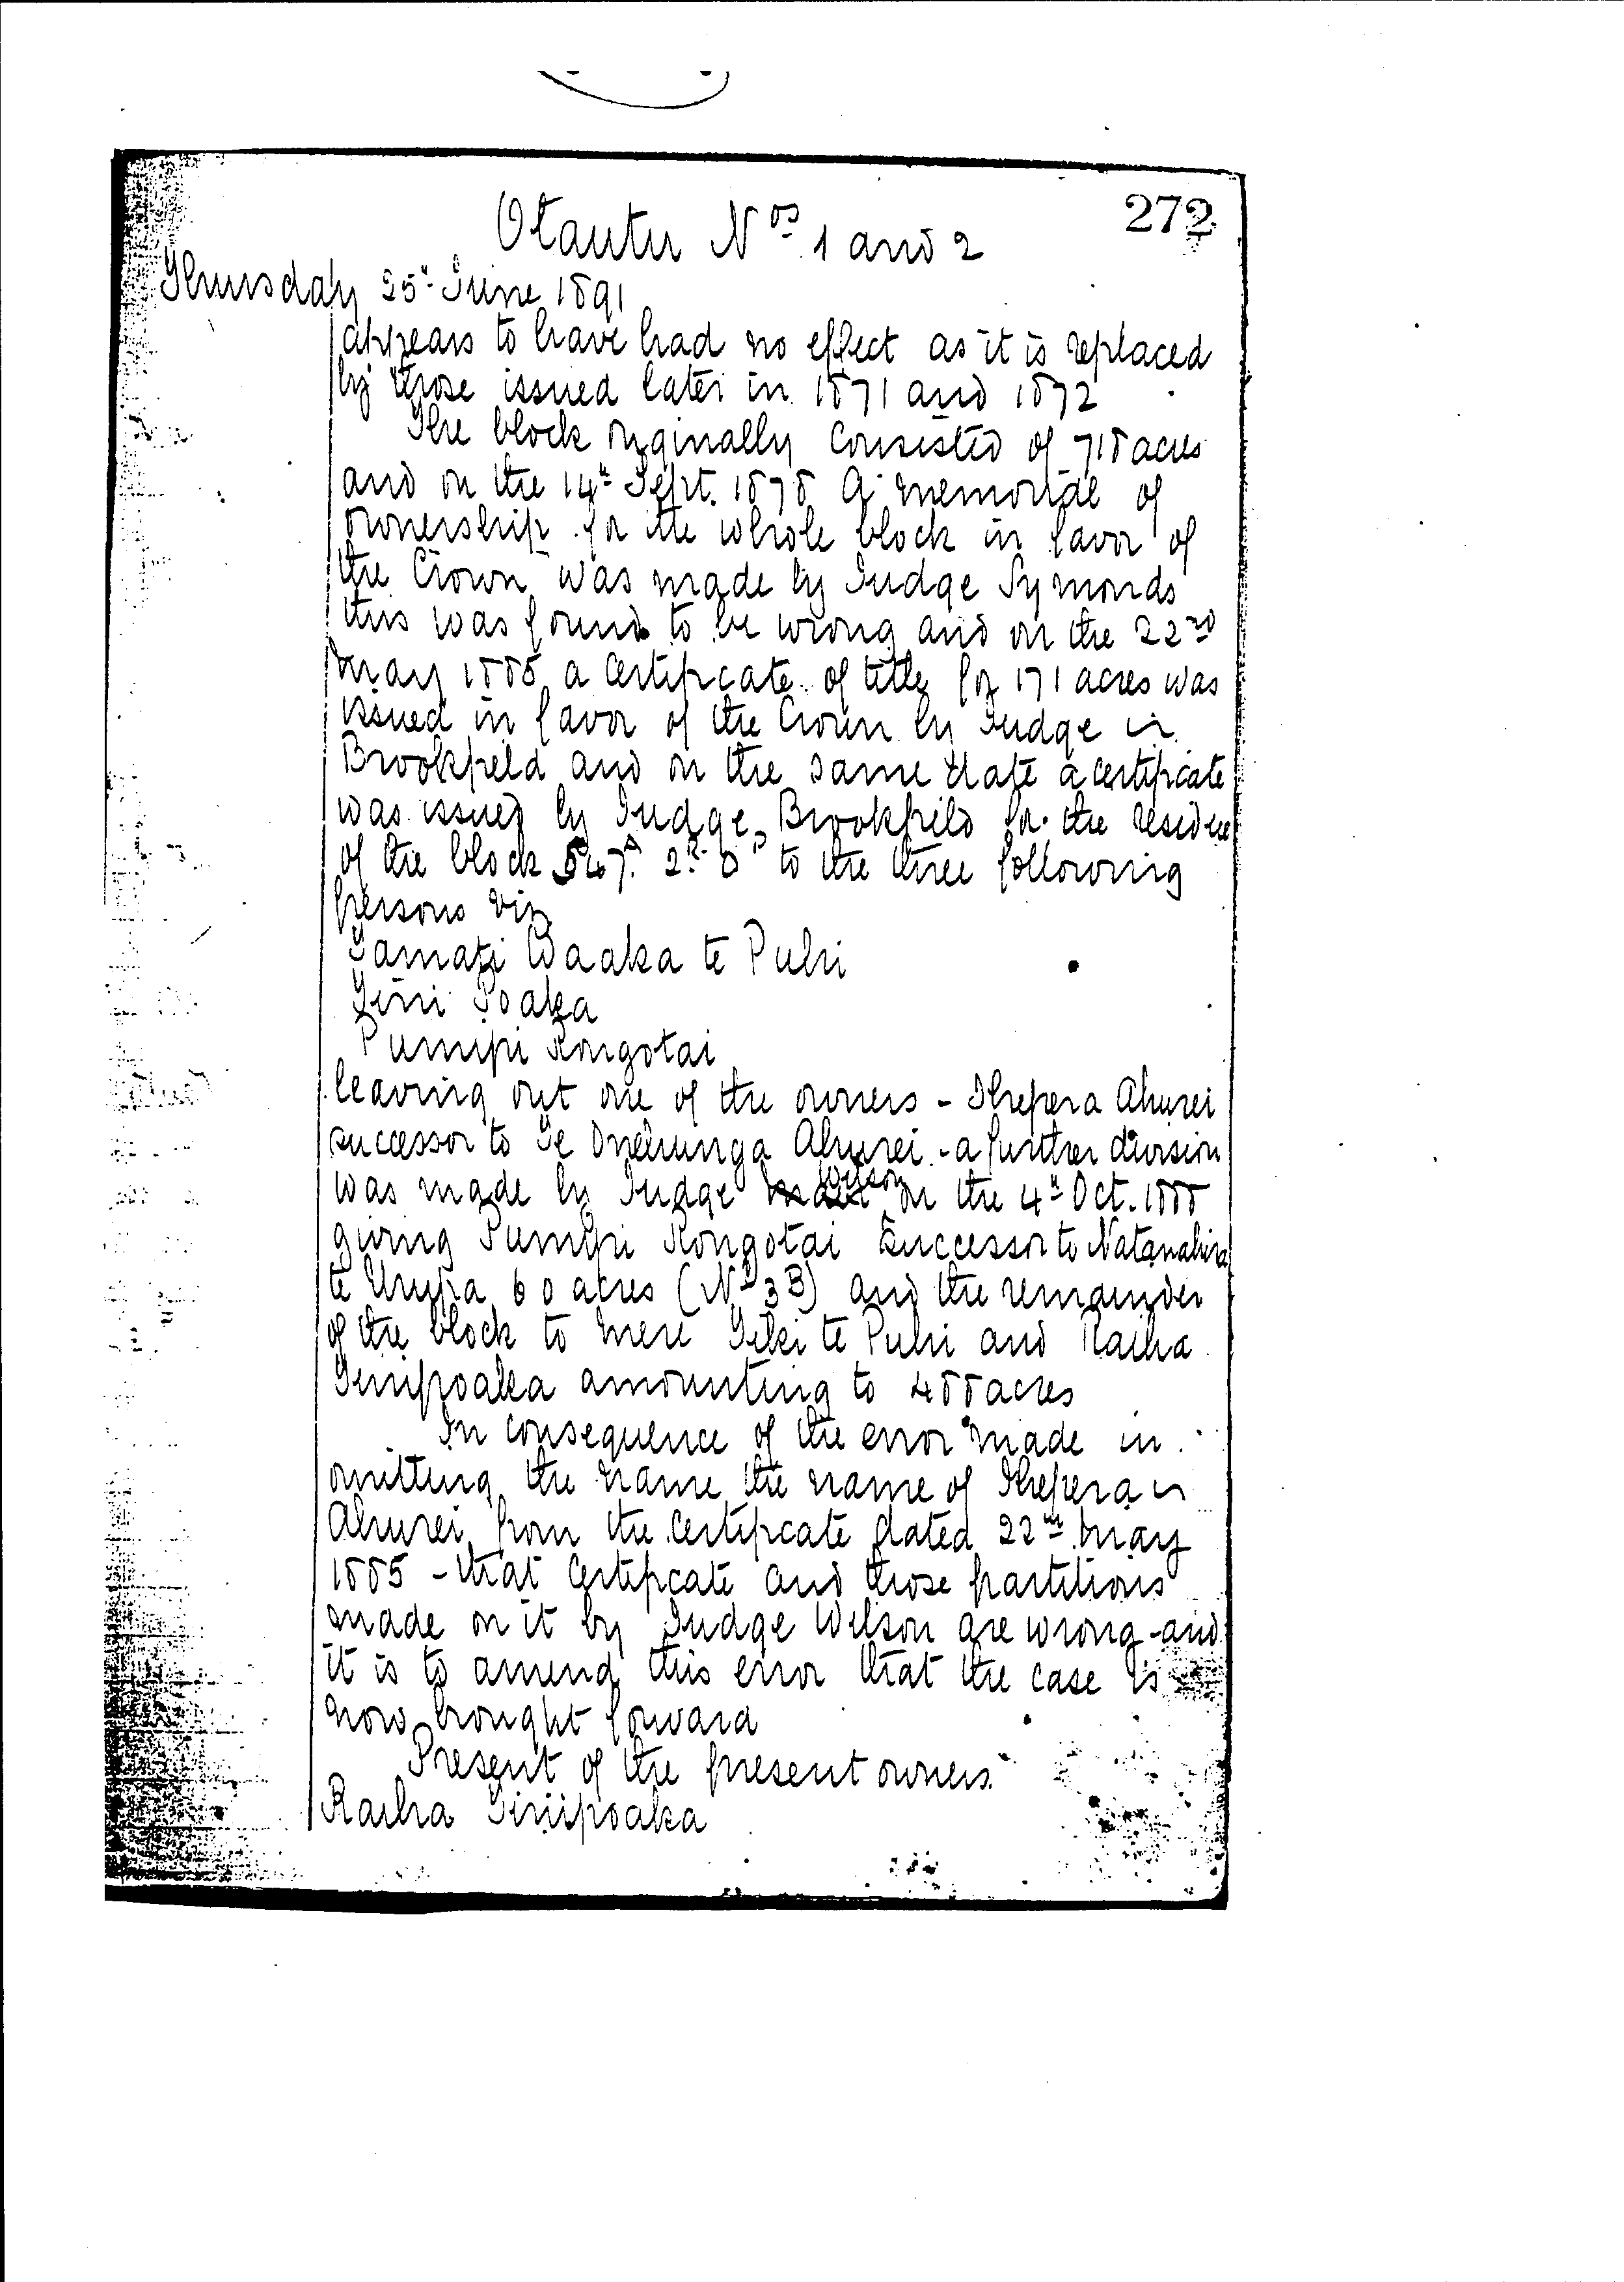 272
Otautu Nos 1 and 2
Thursday 25th June 1891
appears to have had no effect as it is replaced
by those issued later in 1871 and 1872
The block orginally consisted of 718 acres
and on the 14th Sept. 1878 a memorial of
ownership for the whole block in favor of
the Crown was made by Judge Symonds
this was found to be wrong and on the 22nd
May 1885 a certificate of title for 171 acres was
issued in favor of the Crown by Judge
Brookfield and on the same date a certificate
was issued by Judge Brookfield for the residue
of the block 547A 2R 0P to the three following
persons viz
Tamati Waaka te Puhi
Tini Poaka
Pumipi Rongotai
leaving out one of the owners - Ihepera Ahurei
successor to Te Ahurei - a further division
was made by Judge Wilson on the 4th Oct. 1888
giving Pumipi Rongotai successor to Natanahira
te Urupa 60 acres (No 3B) and the remainder
of the block to Mere Tiki te Puhi and Raiha
Tinipoaka amounting to 488 acres
In consequence of the error made in
omitting the name the name of Ihepera
Ahurei from the certificate dated 22nd May
1885 - that certificate and those partitions
made on it by Judge Wilson are wrong - and
it is to amend this error that the case is
now brought forward
Present of the present owners
Raiha Tinipoaka